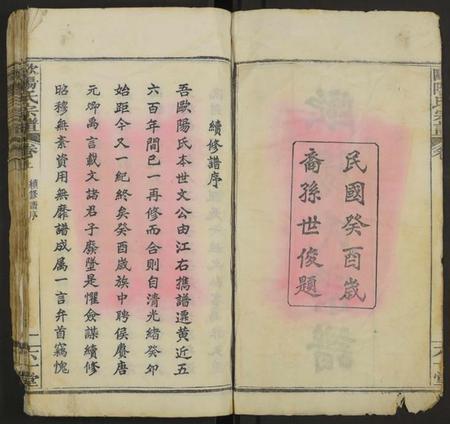 民國癸酉歲
裔孫世俊題
續修譜序
吾歐陽氏本世文公由江右攜譜遷黃近五
六百年間已一再修而合則自清光緒癸卯
始距今又一紀終矣癸酉歲族中聘侯賡唐
元卿禹言載文諸君子廢墜是懼僉謀續修
昭穆無紊資用無靡譜成属一言弁首竊愧
歐陽氏宗譜
卷之
續修譜序
六一堂